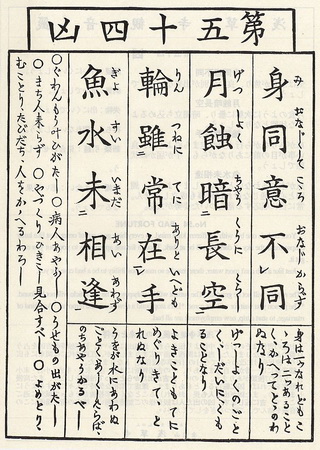 第五十四凶
身同意不レ同
み おなじくして こゝろ おなじからず
月蝕暗長空
げつ しよく ちやう くうに くらし
輪雖二常在一レ手
りん つねに てに ありといへども
魚水未二相逢一
ぎよ すい いまだ あい あわず
身は一つなれどもこ
ゝろは二つあること
く、かへつてとゝのわ
ぬなり
げつしよくのごと
く、しだいにくも
ることなり
よきこともてに
めぐりきて、と
れぬなり
うをが水にあわぬ
ごとく
のちあやうかるべし
○ぐわんもう叶ひがたし ○病人あやふし ○うせもの出がたし
○まち人来らず ○やづくり、ひきこし見合すべし ○よめとり、
むことり、たびだち、人をかゝへるわろし